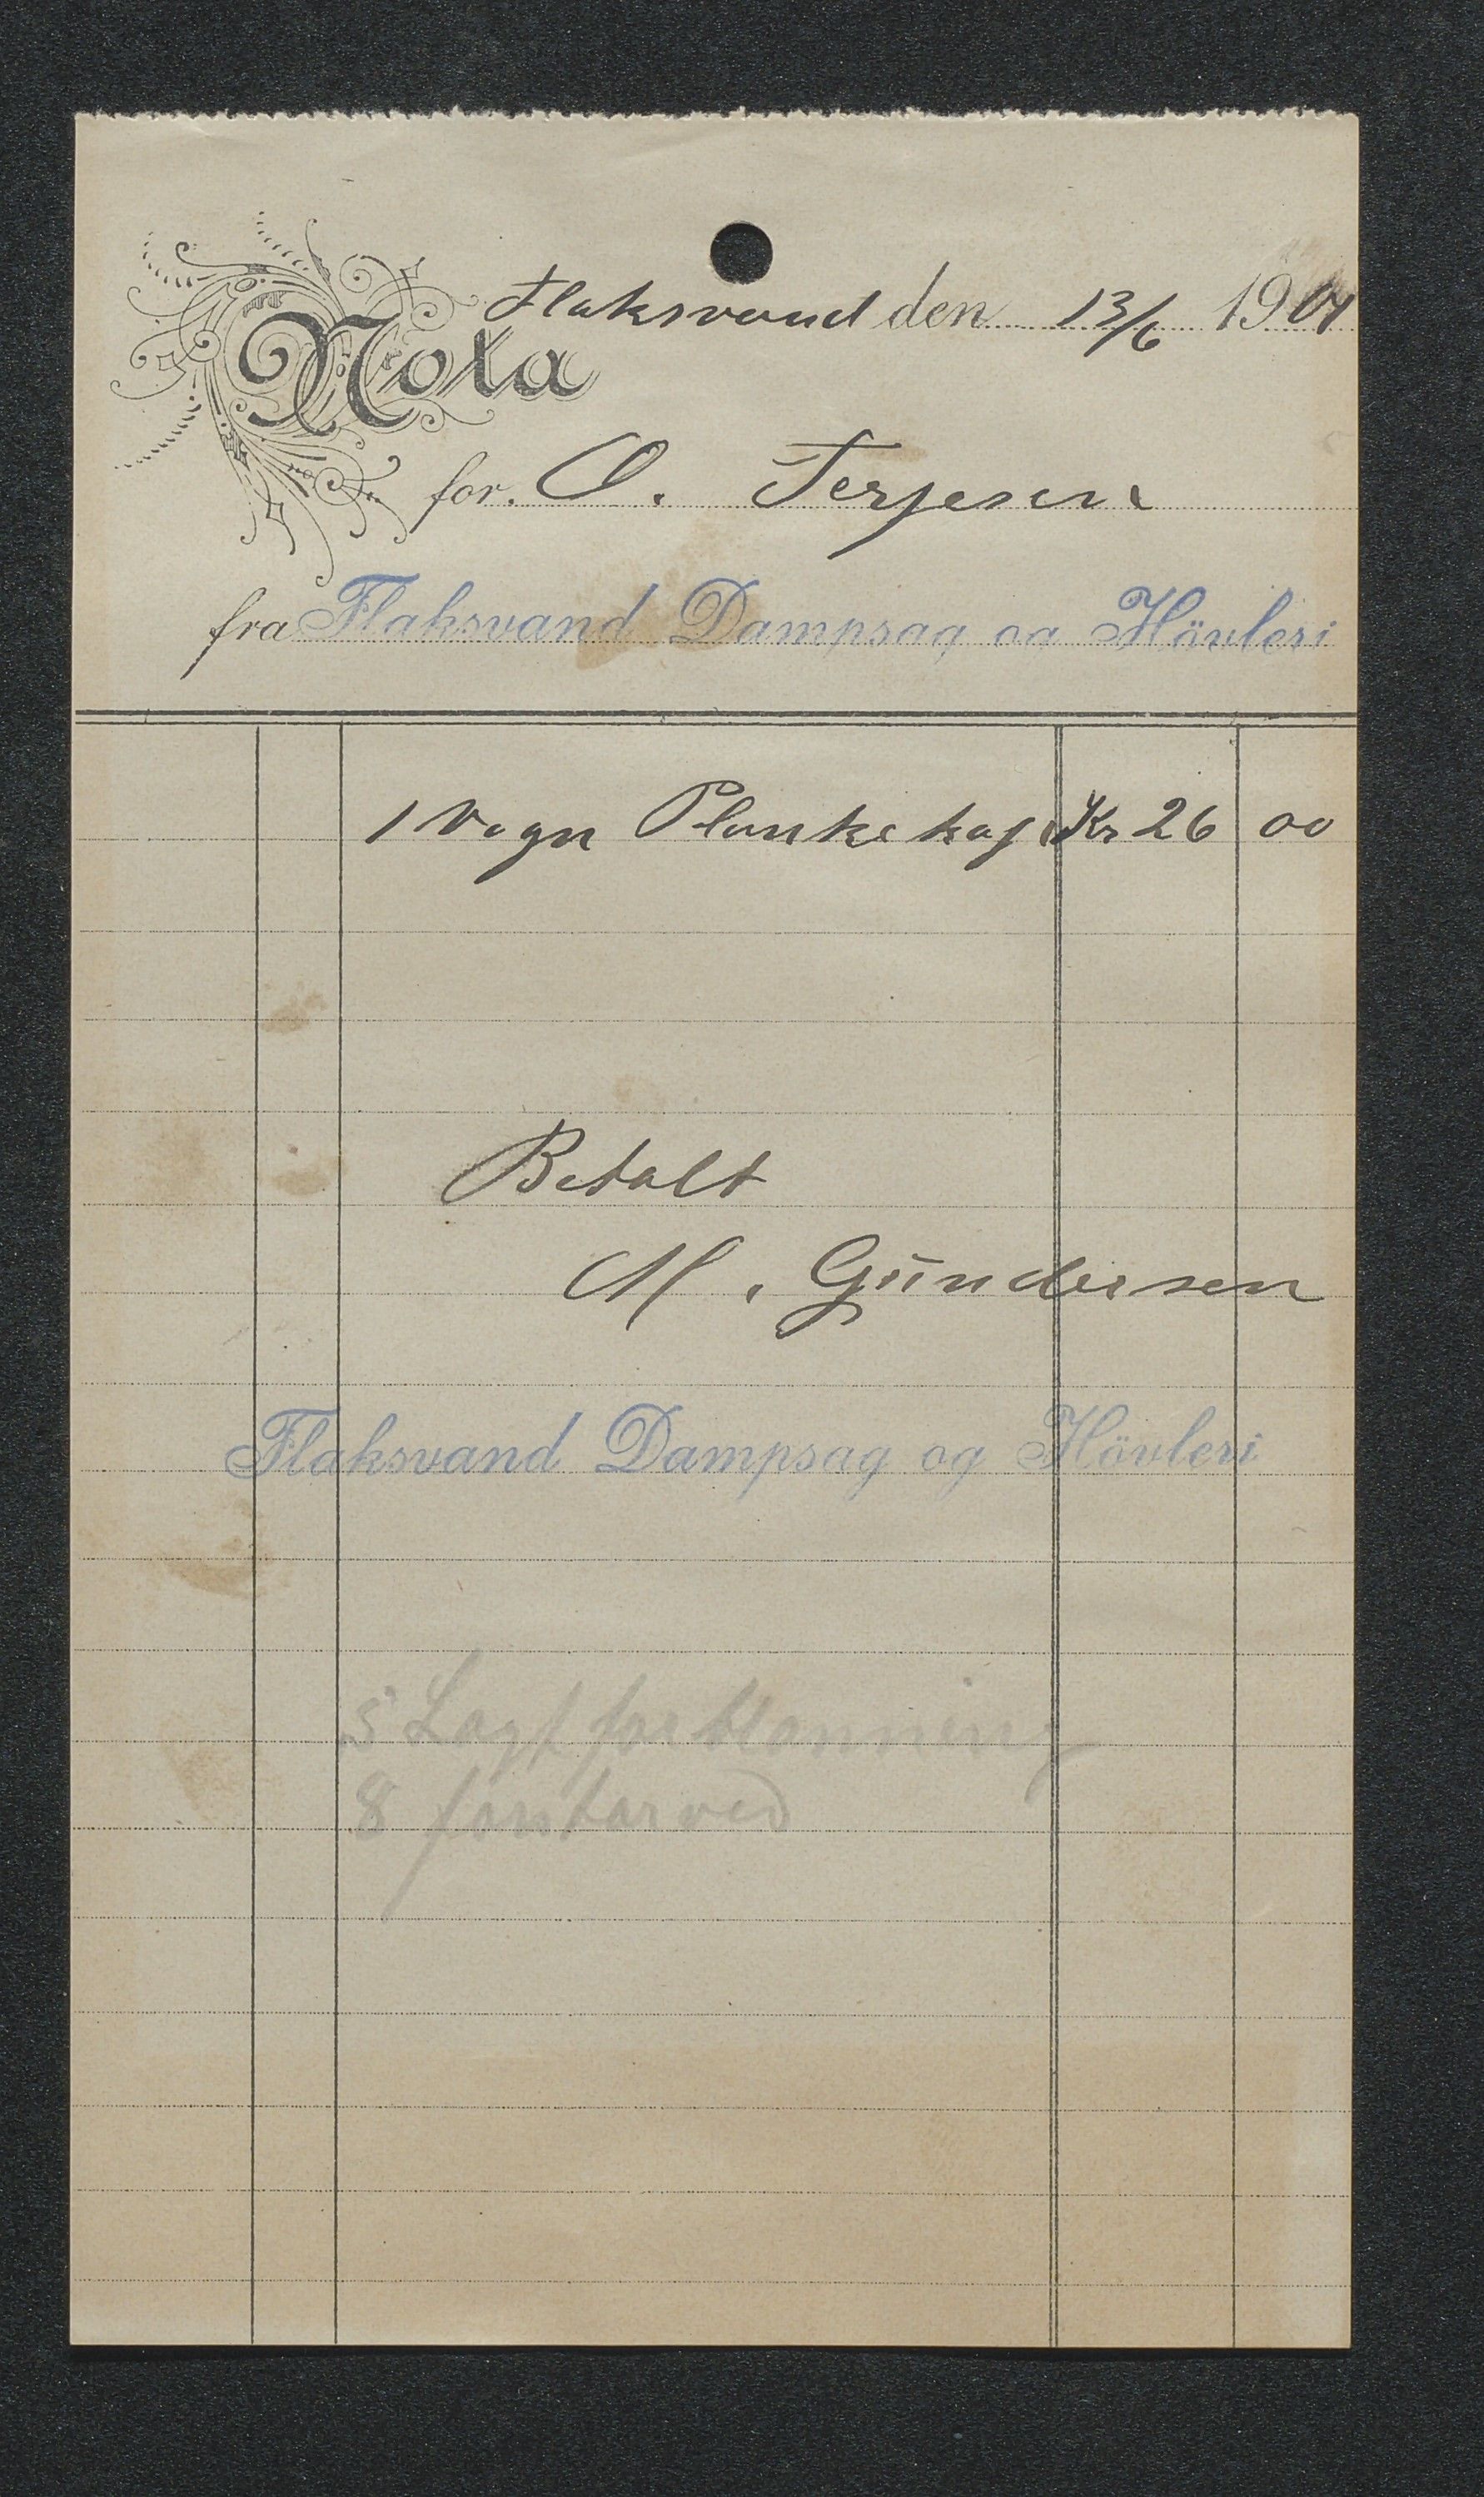 Flaksvand den 13/6 1901
Nota
for. O. Terjesen
fra Flaksvand Dampsag og Hövleri
1 Vogn Planke kap Kr 26 00
Betalt
M. Gundersen
Flaksvand Dampsag og Hövleri
5 Lagt
8